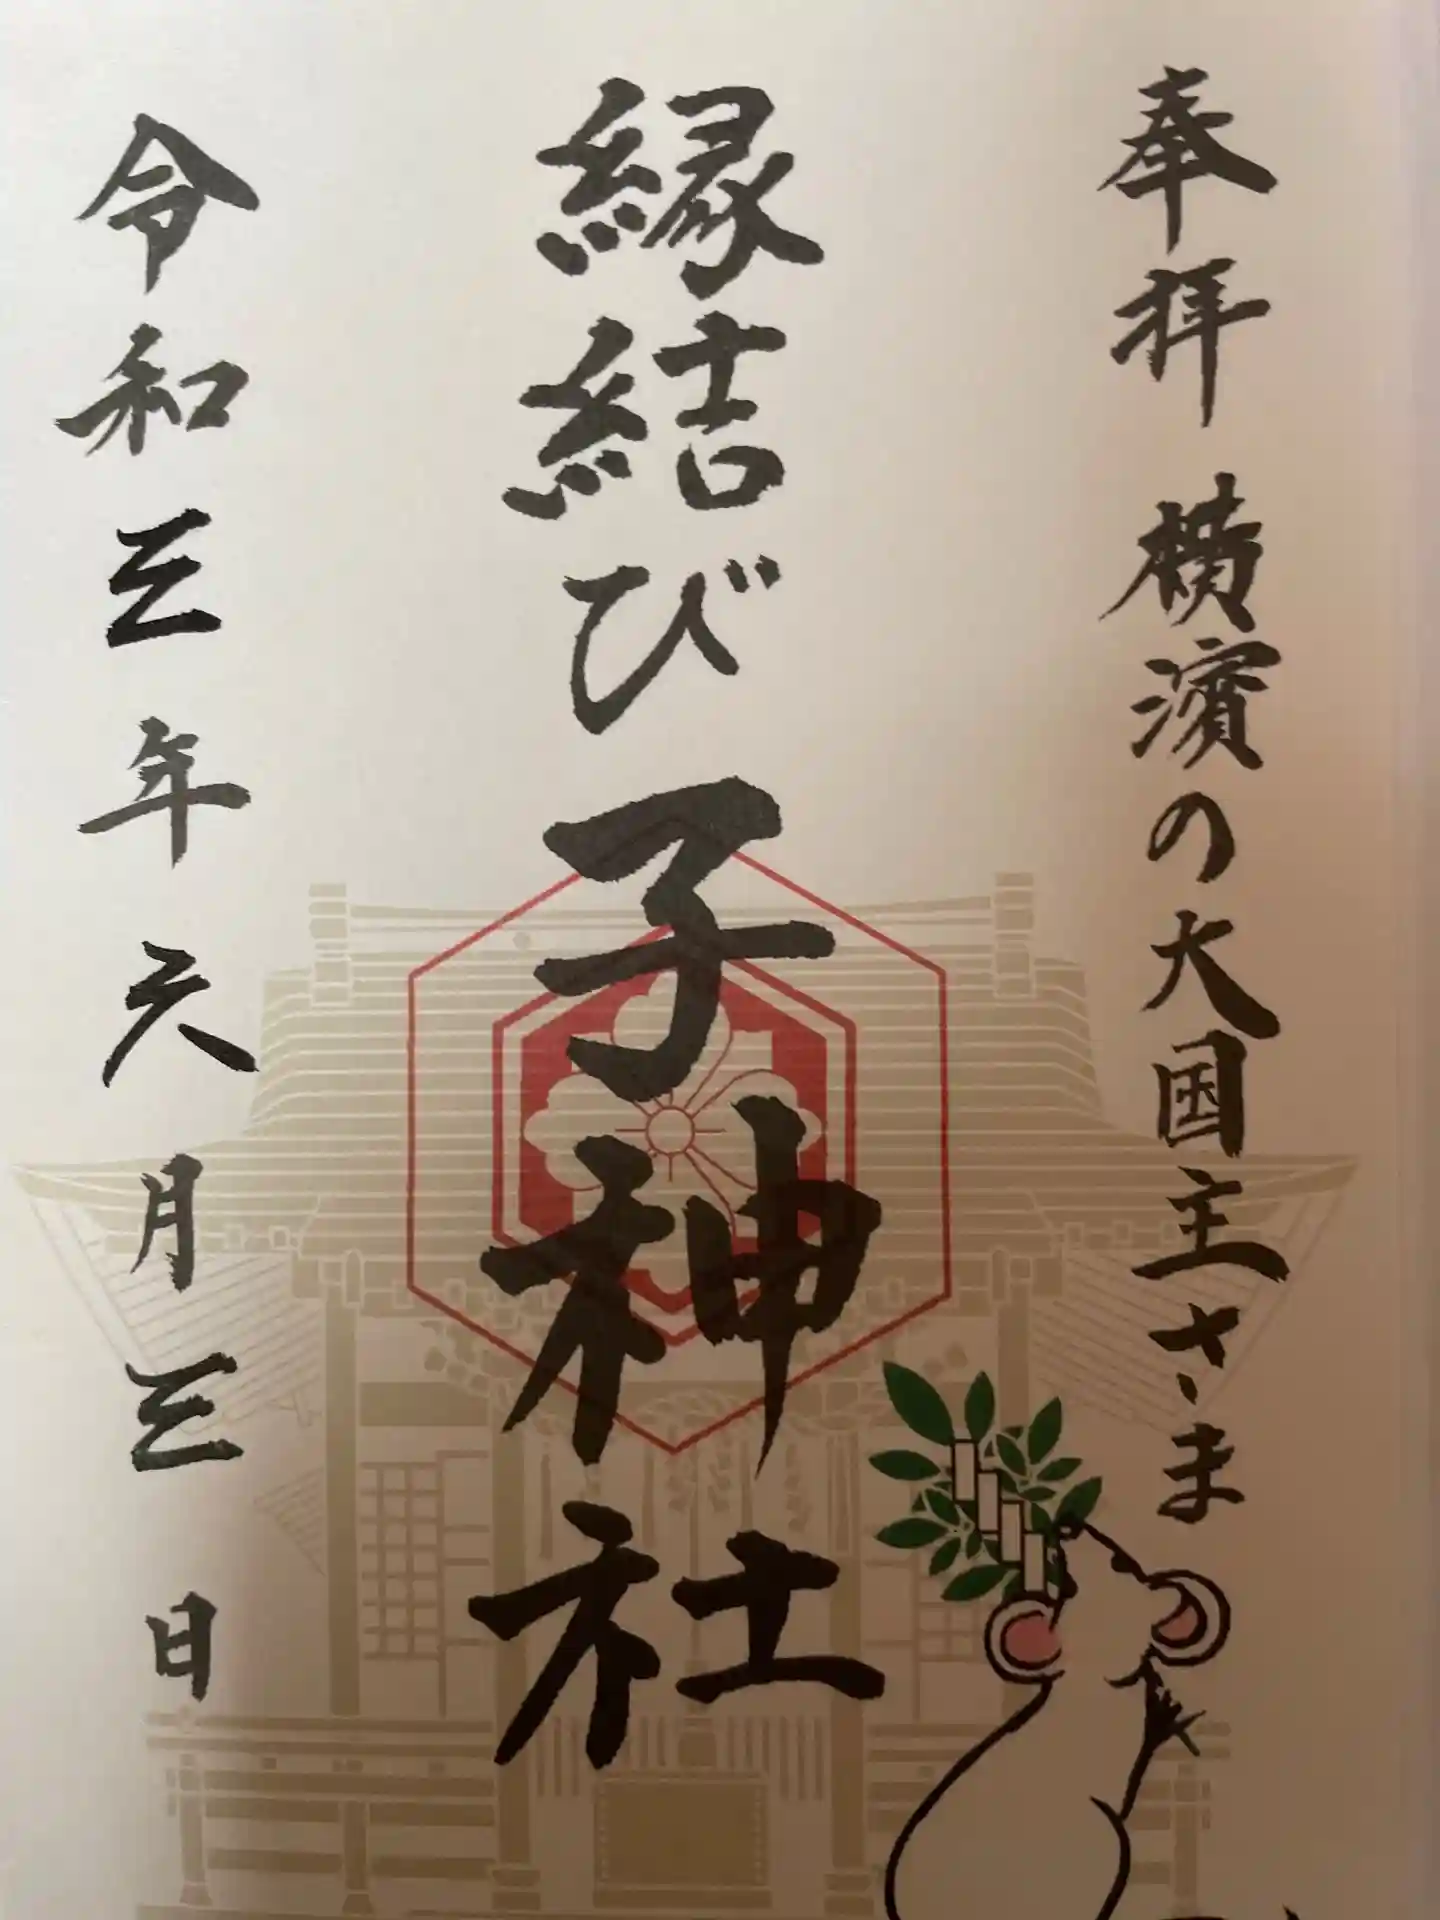 奉拝 横濱の大国主さま
縁結び子神社
令和三年六月三日